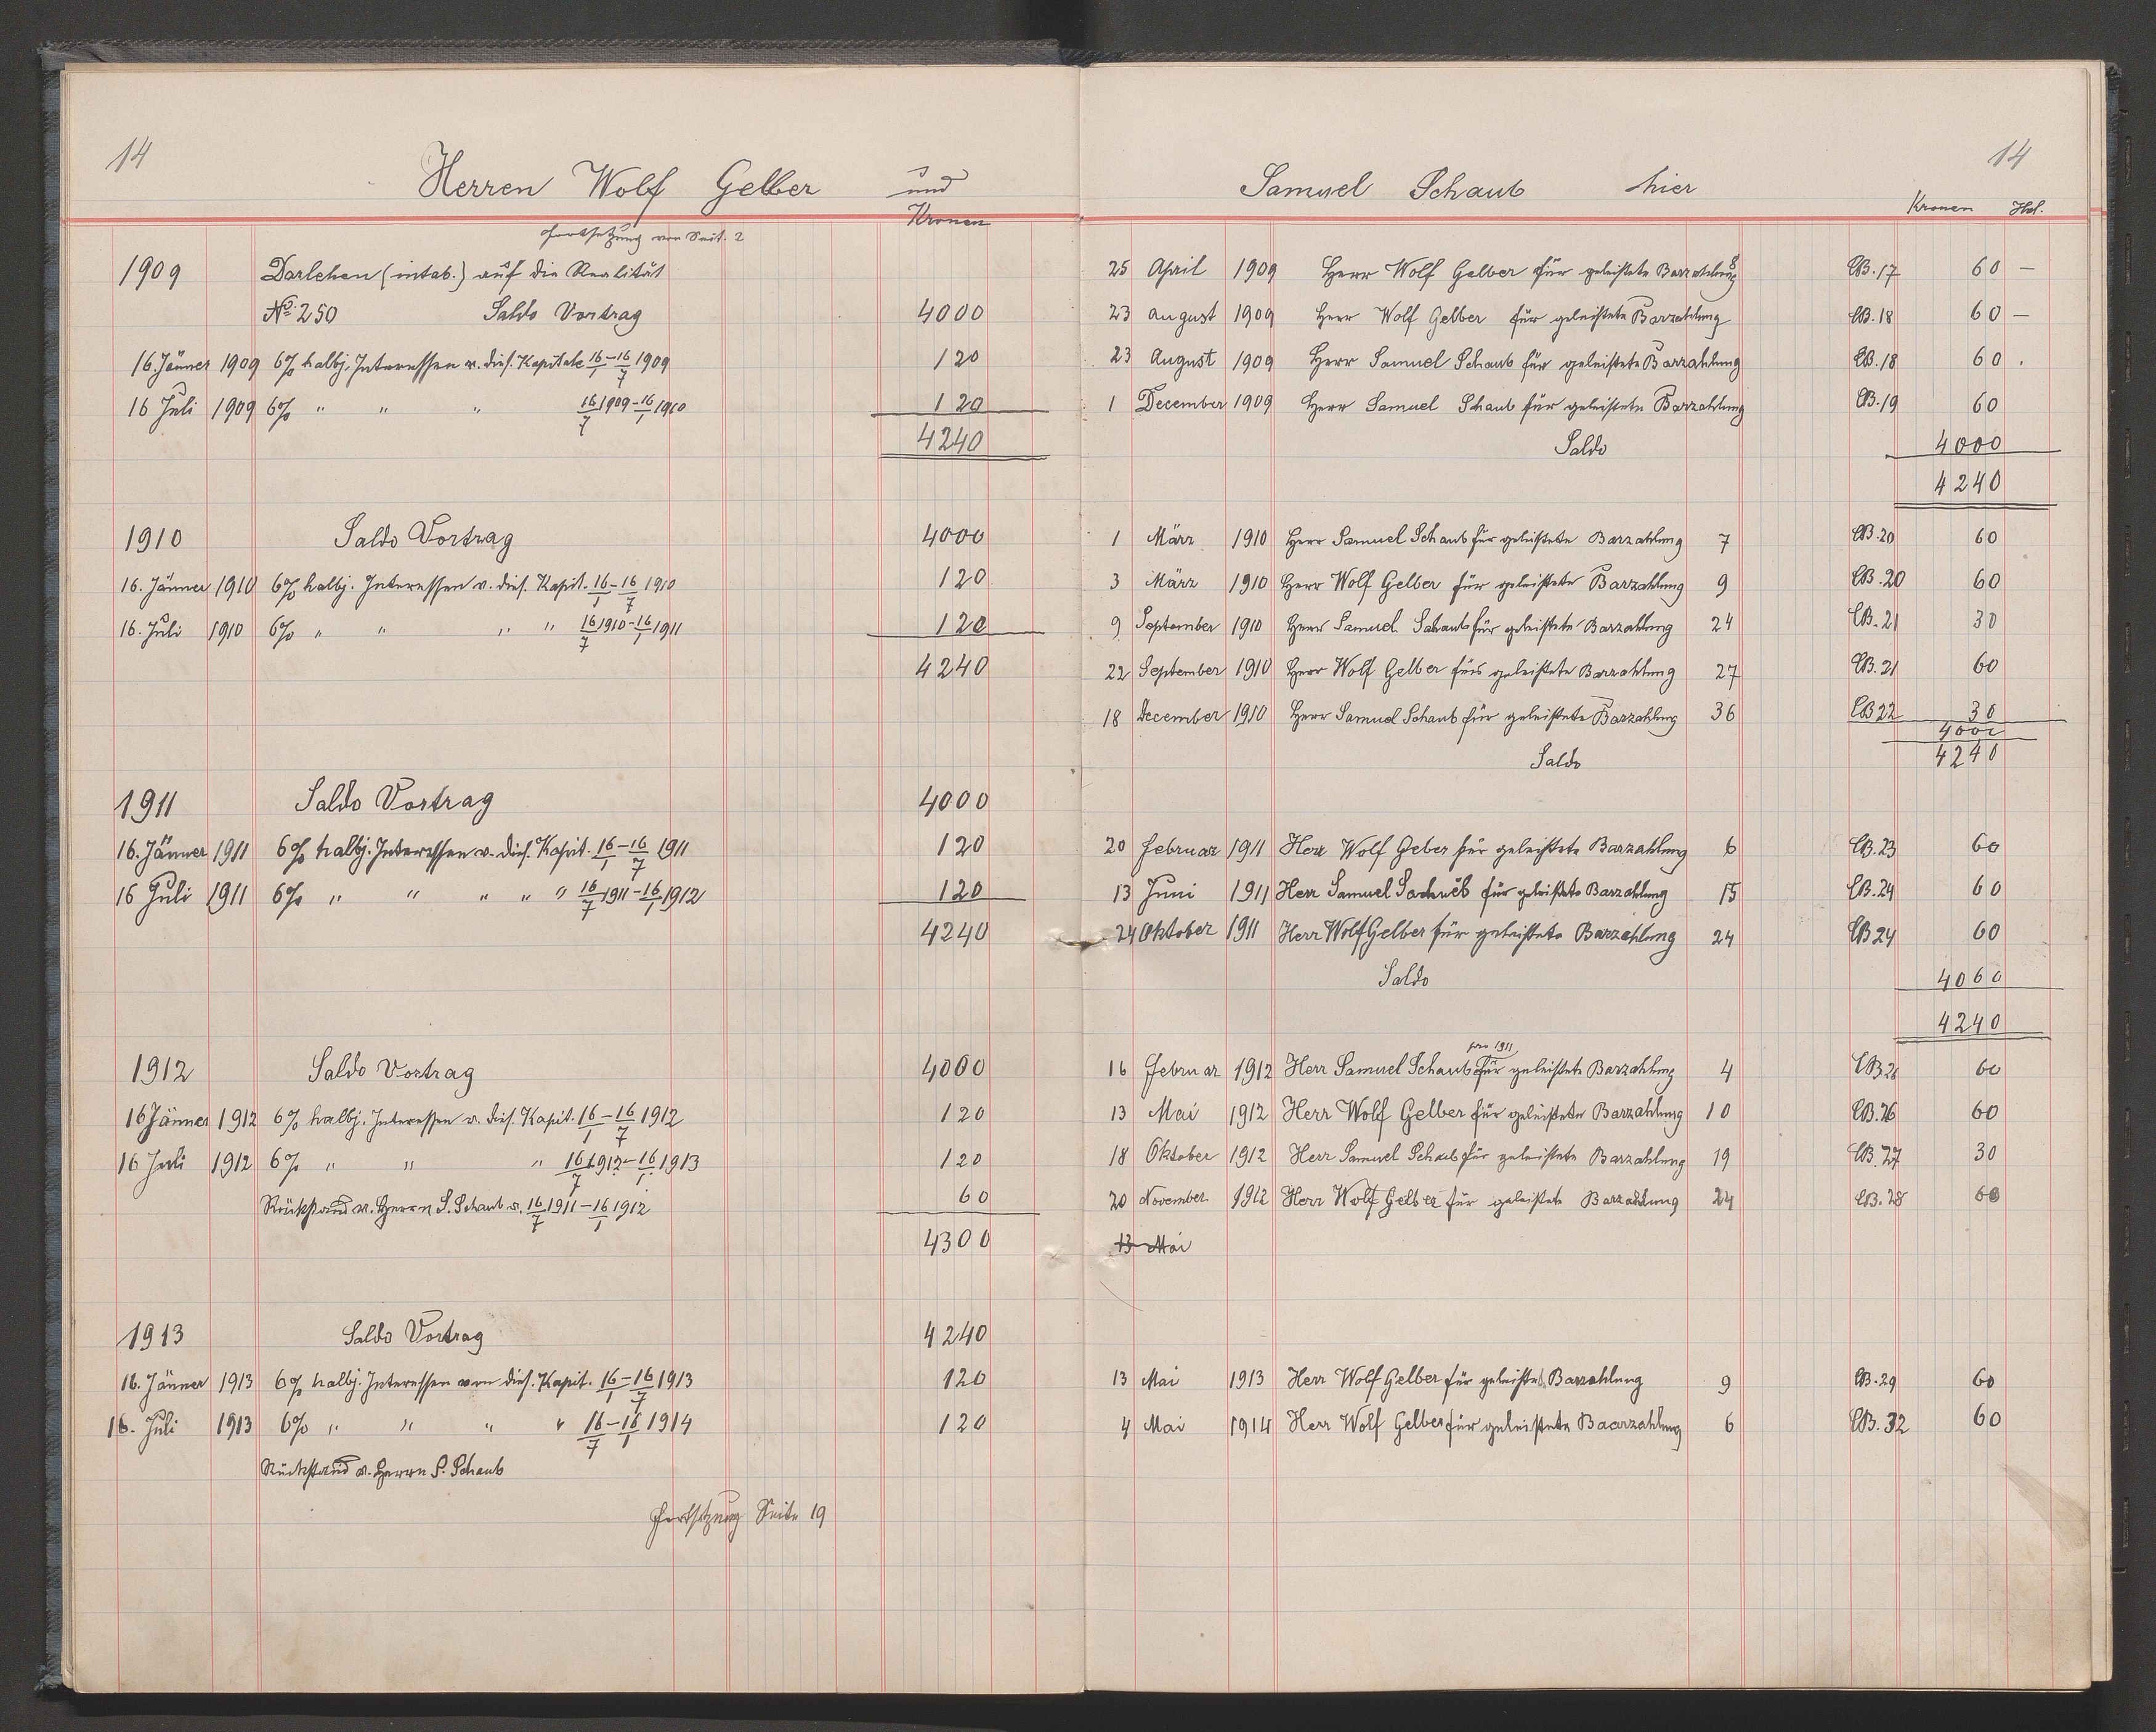 14
Herren Wolf Gelber und
Kronen
Fortsetzung von Seit. 2
1909 Darlehen (intab.) auf die Realität
No 250 Saldo Vortrag 4000
16. Jänner 1909 6% halbj. Interessen v. dies. Kapitale 16/1 – 16/7 1909 120
16 Juli 1909 6% " " " 16/7 1909 – 16/1 1910 120
4240
1910 Saldo Vortrag 4000
16. Jänner 1910 6% halbj. Interessen v. dies. Kapit. 16/1 – 16/7 1910 120
16. Juli 1910 6% " " " " 16/7 1910 – 16/1 1911 120
4240
1911 Saldo Vortrag 4000
16. Jänner 1911 6% halbj. Interessen v. dies. Kapit. 16/1 – 16/7 1911 120
16 Juli 1911 6% " " " " " 16/7 1911 – 16/1 1912 120
4240
1912 Saldo Vortrag 4000
16 Jänner 1912 6% halbj. Interessen v. dies. Kapit. 16/1 – 16/7 1912 120
16 Juli 1912 6% " " " 16/7 1912 – 16/1 1913 120
Rückstand v. Herrn S. Schaub v. 16/7 1911 – 16/1 1912 60
4300
1913 Saldo Vortrag 4240
16. Jänner 1913 6% halbj. Interessen von dies. Kapit. 16/1 – 16/7 1913 120
16. Juli 1913 6% " " " " 16/7 – 16/1 1914 120
Rückstand v. Herrn S. Schaub
Fortsetzung Seite 19
14
Samuel Schaub hier
Kronen Hel.
25 April 1909 Herr Wolf Gelber für geleistete Barzahlung CB. 17 60 —
23 August 1909 Herr Wolf Gelber für geleistete Barzahlung CB. 18 60 —
23 August 1909 Herr Samuel Schaub für geleistete Barzahlung CB. 18 60 .
1 December 1909 Herr Samuel Schaub für geleistete Barzahlung CB. 19 60
Saldo 4000
4240
1 März 1910 Herr Samuel Schaub für geleistete Barzahlung 7 CB. 20 60
3 März 1910 Herr Wolf Gelber für geleistete Barzahlung 9 CB. 20 60
9 September 1910 Herr Samuel Schaub für geleistete Barzahlung 24 CB. 21 30
22 September 1910 Herr Wolf Gelber für geleistete Barzahlung 27 CB. 21 60
18 December 1910 Herr Samuel Schaub für geleistete Barzahlung 36 CB 22 30
4000
Saldo 4240
20 Februar 1911 Herr Wolf Geber für geleistete Barzahlung 6 CB. 23 60
13 Juni 1911 Herr Samuel für geleistete Barzahlung 15 CB. 24 60
24 Oktober 1911 Herr Wolf Gelber für geleistete Barzahlung 24 CB 24 60
Saldo 4060
4240
pro 1911
16 Februar 1912 Herr Samuel Schaub für geleistete Barzahlung 4 CB 60
13 Mai 1912 Herr Wolf Gelber für geleistete Barzahlung 10 CB. 26 60
18 Oktober 1912 Herr Samuel Schaub für geleistete Barzahlung 19 CB. 27 30
20 November 1912 Herr Wolf Gelber für geleistete Barzahlung 24 CB. 28 60
13 Mai
13 Mai 1913 Herr Wolf Gelber für geleistet Barzahlung 9 CB. 29 60
4 Mai 1914 Herr Wolf Gelber für geleistete Baarzahlung 6 CB. 32 60